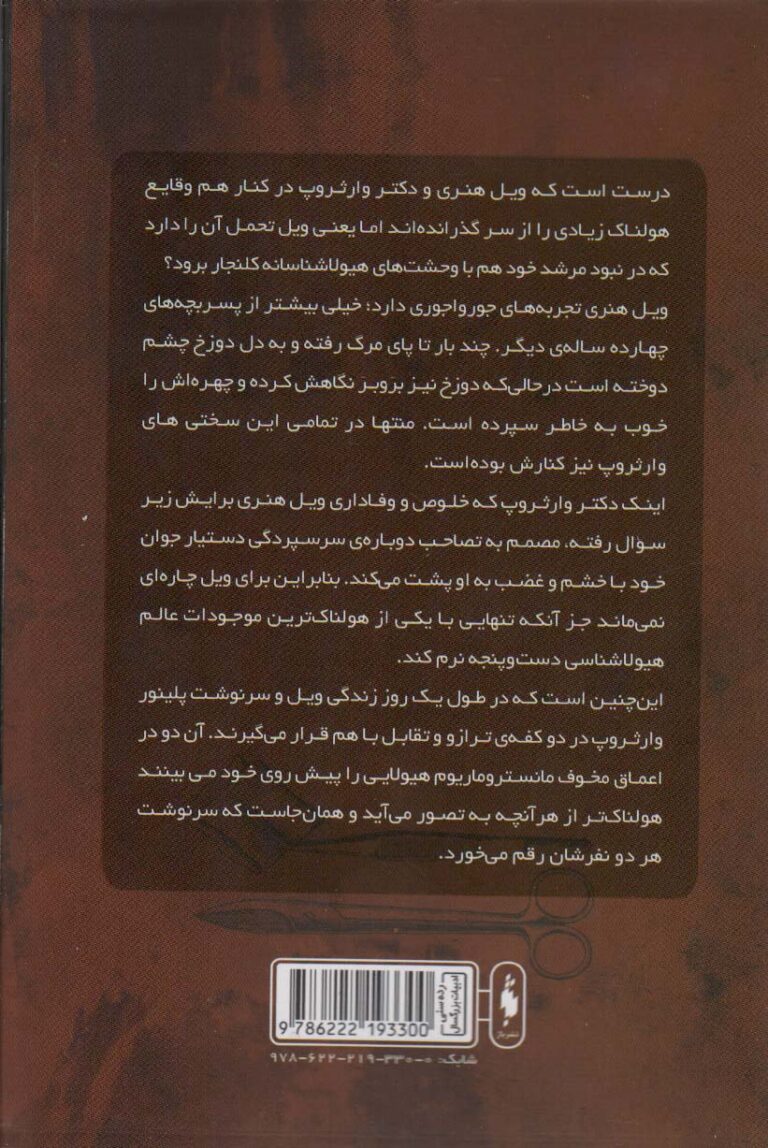 درست است که ویل هنری و دکتر وارثروپ در کنار هم وقایع
هولناک زیادی را از سر گذرانده‌اند اما یعنی ویل تحمل آن را دارد
که در نبود مرشد خود هم با وحشت‌های هیولاشناسانه کلنجار برود؟
ویل هنری تجربه‌های جورواجوری دارد؛ خیلی بیشتر از پسربچه‌های
چهارده ساله‌ی دیگر. چند بار تا پای مرگ رفته و به دل دوزخ چشم
دوخته است درحالی‌که دوزخ نیز بروبر نگاهش کرده و چهره‌اش را
خوب به خاطر سپرده است. منتها در تمامی این سختی های
وارثروپ نیز کنارش بوده‌است.
اینک دکتر وارثروپ که خلوص و وفاداری ویل هنری برایش زیر
سؤال رفته، مصمم به تصاحب دوباره‌ی سرسپردگی دستیار جوان
خود با خشم و غضب به او پشت می‌کند. بنابراین برای ویل چاره‌ای
نمی‌ماند جز آنکه تنهایی با یکی از هولناک‌ترین موجودات عالم
هیولاشناسی دست‌وپنجه نرم کند.
این‌چنین است که در طول یک روز زندگی ویل و سرنوشت پلینور
وارثروپ در دو کفه‌ی ترازو و تقابل با هم قرار می‌گیرند. آن دو در
اعماق مخوف مانستروماریوم هیولایی را پیش روی خود می بینند
هولناک‌تر از هرآنچه به تصور می‌آید و همان‌جاست که سرنوشت
هر دو نفرشان رقم می‌خورد.
رده سنی:
ادبیات بزرگسال
نشر باژ
9 786222 193300
شابک: ۹۷۸-۶۲۲-۲۱۹-۳۳۰-۰